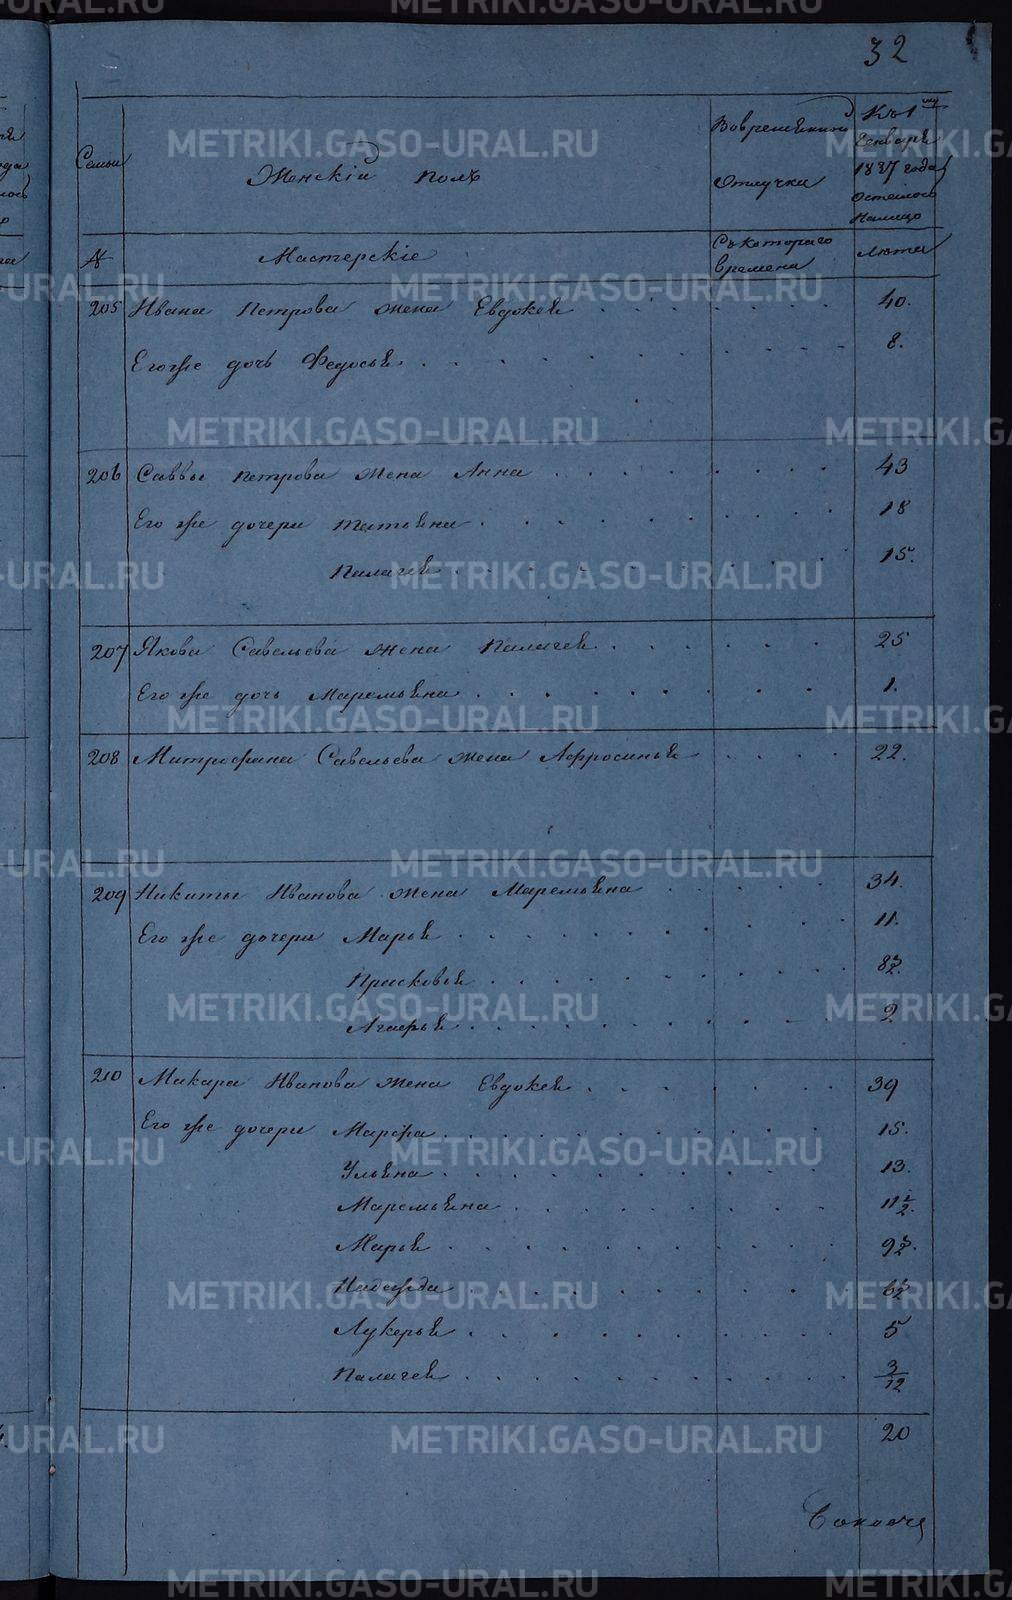 32
Семьи
Женскій полъ
Во временной
отлучки
Къ 1му
Генваря
1837 года
осталось
налицо
№
Мастерскіе
Съ котораго
времени
Лѣта
205 Ивана Петрова жена Евдокея 40.
Его же дочь Федосья 8.
206 Саввы Петрова жена Анна 43
Его же дочери Татьяна 18
Палагея 15.
207 Якова Савельева жена Палагея 25
Его же дочь Маремьяна 1.
208 Митрофана Савельева жена Афросинья 22.
209 Никиты Иванова жена Маремьяна 34.
Его же дочери Марья 11.
Прасковья
Агафья 2
210 Макара Иванова жена Евдокея 39
Его же дочери Марфа 15.
Ульяна 13.
Маремьяна 11 1/2.
Марья
Надежда
Лукерья 5
Палагея 3/12
20
METRIKI.GASO-URAL.RU